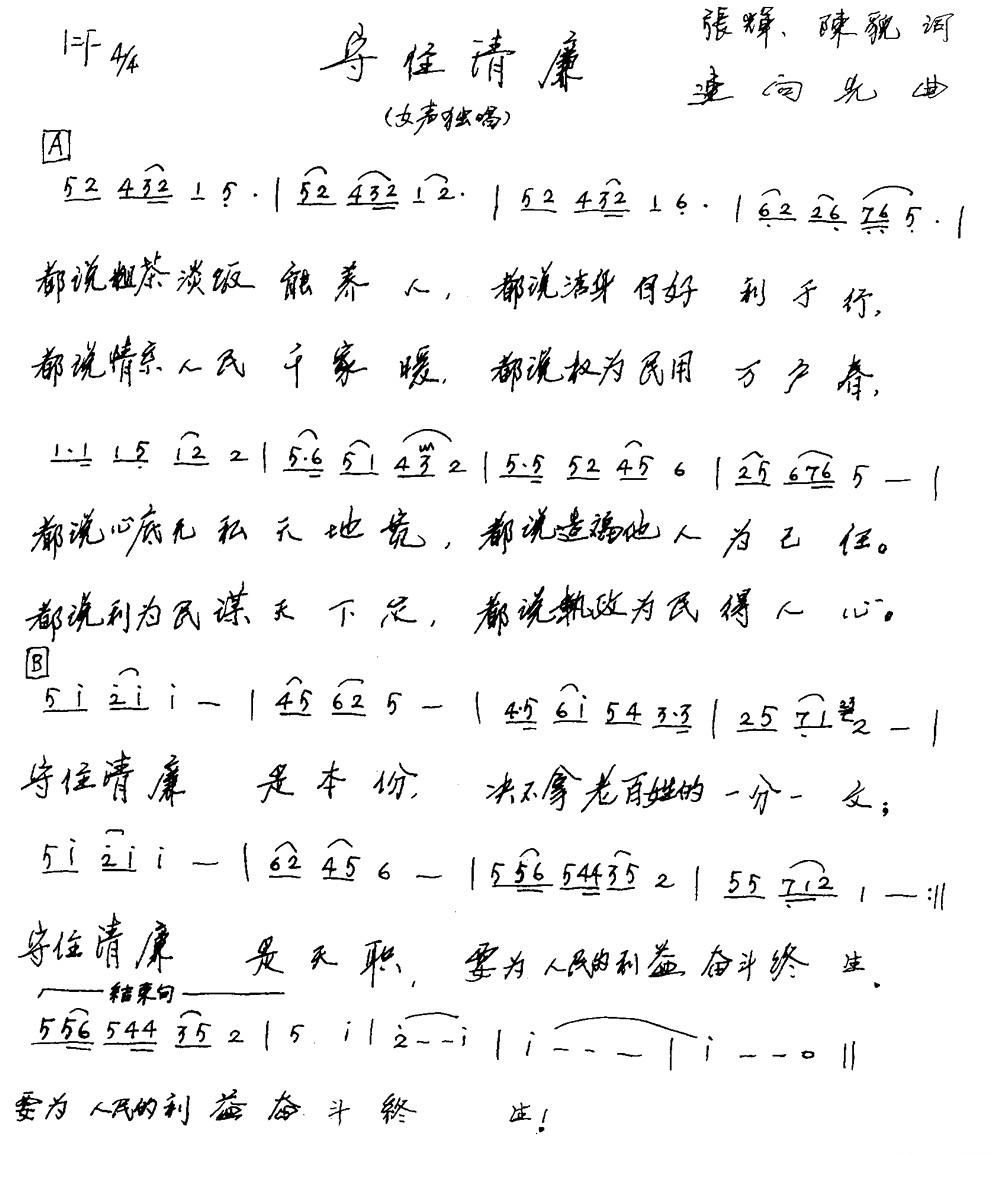 1=F 4/4
守住清廉
張輝、陳貌词
連向先曲
(女声独唱)
A
52 432 1 5· | 52 432 12· | 52 432 1 6· | 62 26 76 5· |
都说粗茶淡饭能养人，都说洁身自好利于行，
都说情系人民千家暖，都说权为民用万户春，
1·1 15 12 2 | 5·6 51 43 2 | 5·5 52 45 6 | 25 676 5 — |
都说心底无私天地宽，都说造福他人为己任。
都说利为民谋天下定，都说執政为民得人心。
B
5i i̇2̇i i — | 45 62 5 — | 4·5 6i 54 3·3 | 25 71 2 — |
守住清廉是本份，决不拿老百姓的一分一文；
5i 2̇i i — | 62 45 6 — | 5 56 544 35 2 | 55 712 1 — :||
守住清廉是天职，要为人民的利益奋斗终生．
结束句
5 56 544 35 2 | 5 i | 2̇ - - i | i - - — | i - - 0 ||
要为人民的利益奋斗终生！